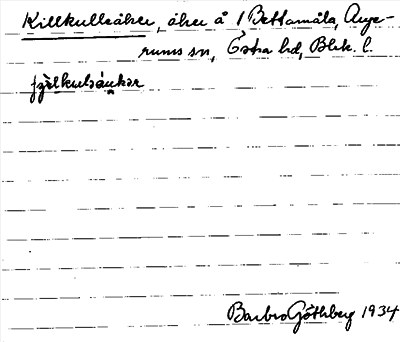 Killkulleåker, åker å 1 Bettamåla, Ange-
rums sn, Östra hd, Blek. l.
Barbro Göthberg 1934